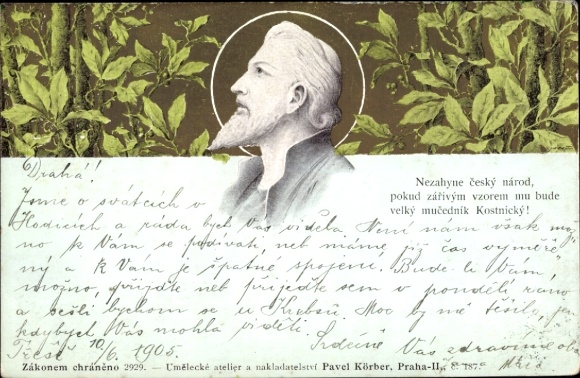 Nezahyne český národ,
pokud zářivým vzorem mu bude
velký mučedník Kostnický!
Drahá!
Jsme o svátcích v
Hodicích a ráda bych Vás viděla. Není nám však mož
no k Vám se podívati, neb máme již čas vyměře
ný a k Vám je špatné spojení. Bude-li Vám
možno, přijďte neb přijeďte sem v pondělí ráno
a sešli bychom se u Moc by mě těšilo,
kdybych Vás mohla viděti.
Srdečně Vás zdravíme oba
Třešť 10/6. 1905.
Zákonem chráněno 2929. — Umělecké atelier a nakladatelství Pavel Körber, Praha-II., č. 187.